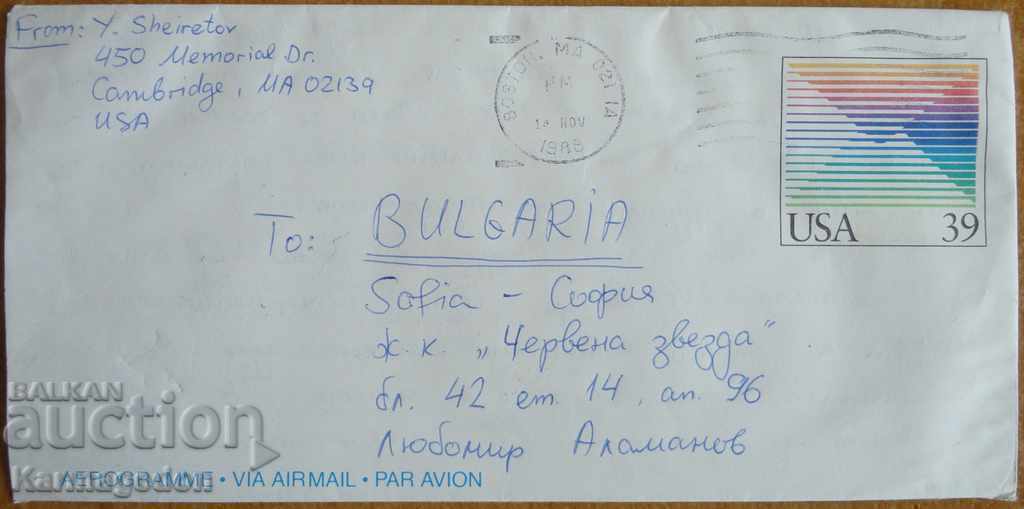 From: Y. Sheiretov
450 Memorial Dr.
Cambridge, MA 02139
USA
BOSTON, MA 021 1A
PM
NOV
USA 39
To: BULGARIA
Sofia - София
ж.к. „Червена звезда“
бл. 42 ет. 14, ап. 96
Любомир Аламанов
AEROGRAMME • VIA AIRMAIL • PAR AVION
BALKAN
auction
Karmagedon